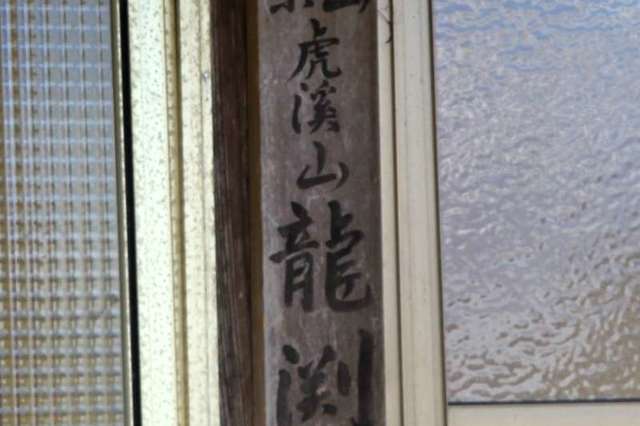 虎溪山龍渕